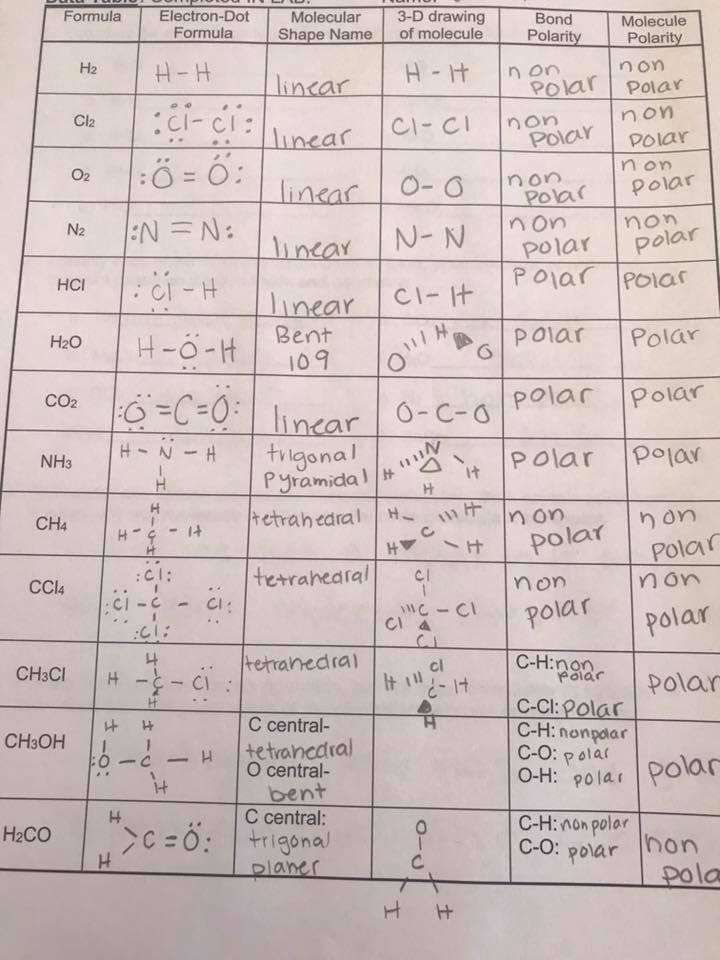 Data Table: Completed IN LAB.
Formula Electron-Dot Formula Molecular Shape Name 3-D drawing of molecule Bond Polarity Molecule Polarity
H2 H-H linear H-H non polar non polar
Cl2 :Cl-Cl: linear Cl-Cl non polar non polar
O2 :O=O: linear O-O non polar non polar
N2 :N≡N: linear N-N non polar non polar
HCl :Cl-H linear Cl-H polar polar
H2O H-O-H Bent 109 O H O polar Polar
CO2 :O=C=O: linear O-C-O polar polar
NH3 H-N-H H trigonal pyramidal N H H H polar polar
CH4 H H-C-H H tetrahedral H H C H H non polar non polar
CCl4 :Cl: :Cl-C-Cl: :Cl: tetrahedral Cl Cl C-Cl Cl non polar non polar
CH3Cl H H-C-Cl: H tetrahedral Cl H C-H H C-H: non polar C-Cl: polar polar
CH3OH H H :O-C-H H C central- tetrahedral O central- bent C-H: nonpolar C-O: polar O-H: polar polar
H2CO H H >C=O: C central: trigonal planer O C H H C-H: nonpolar C-O: polar non pola